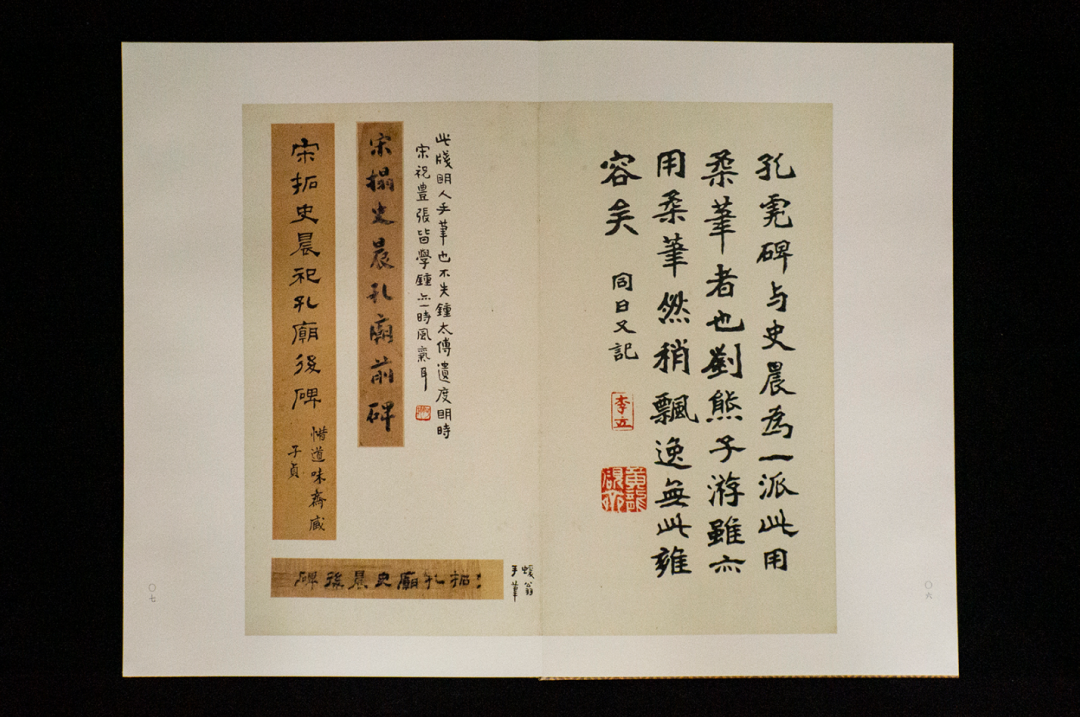 孔彪碑与史晨為一派此用
柔筆者也劉熊子游雖亦
用柔筆然稍飄逸無此雍
容矣
同日又記
〇六
此牋明人手筆也不失鍾太傅遺度明時
宋祝豊張皆學鍾亦一時風氣耳
宋搨史晨孔廟前碑
宋拓史晨祀孔廟後碑
惜道味齋藏
子貞
拓孔廟史晨後碑
蝯翁
手筆
〇七